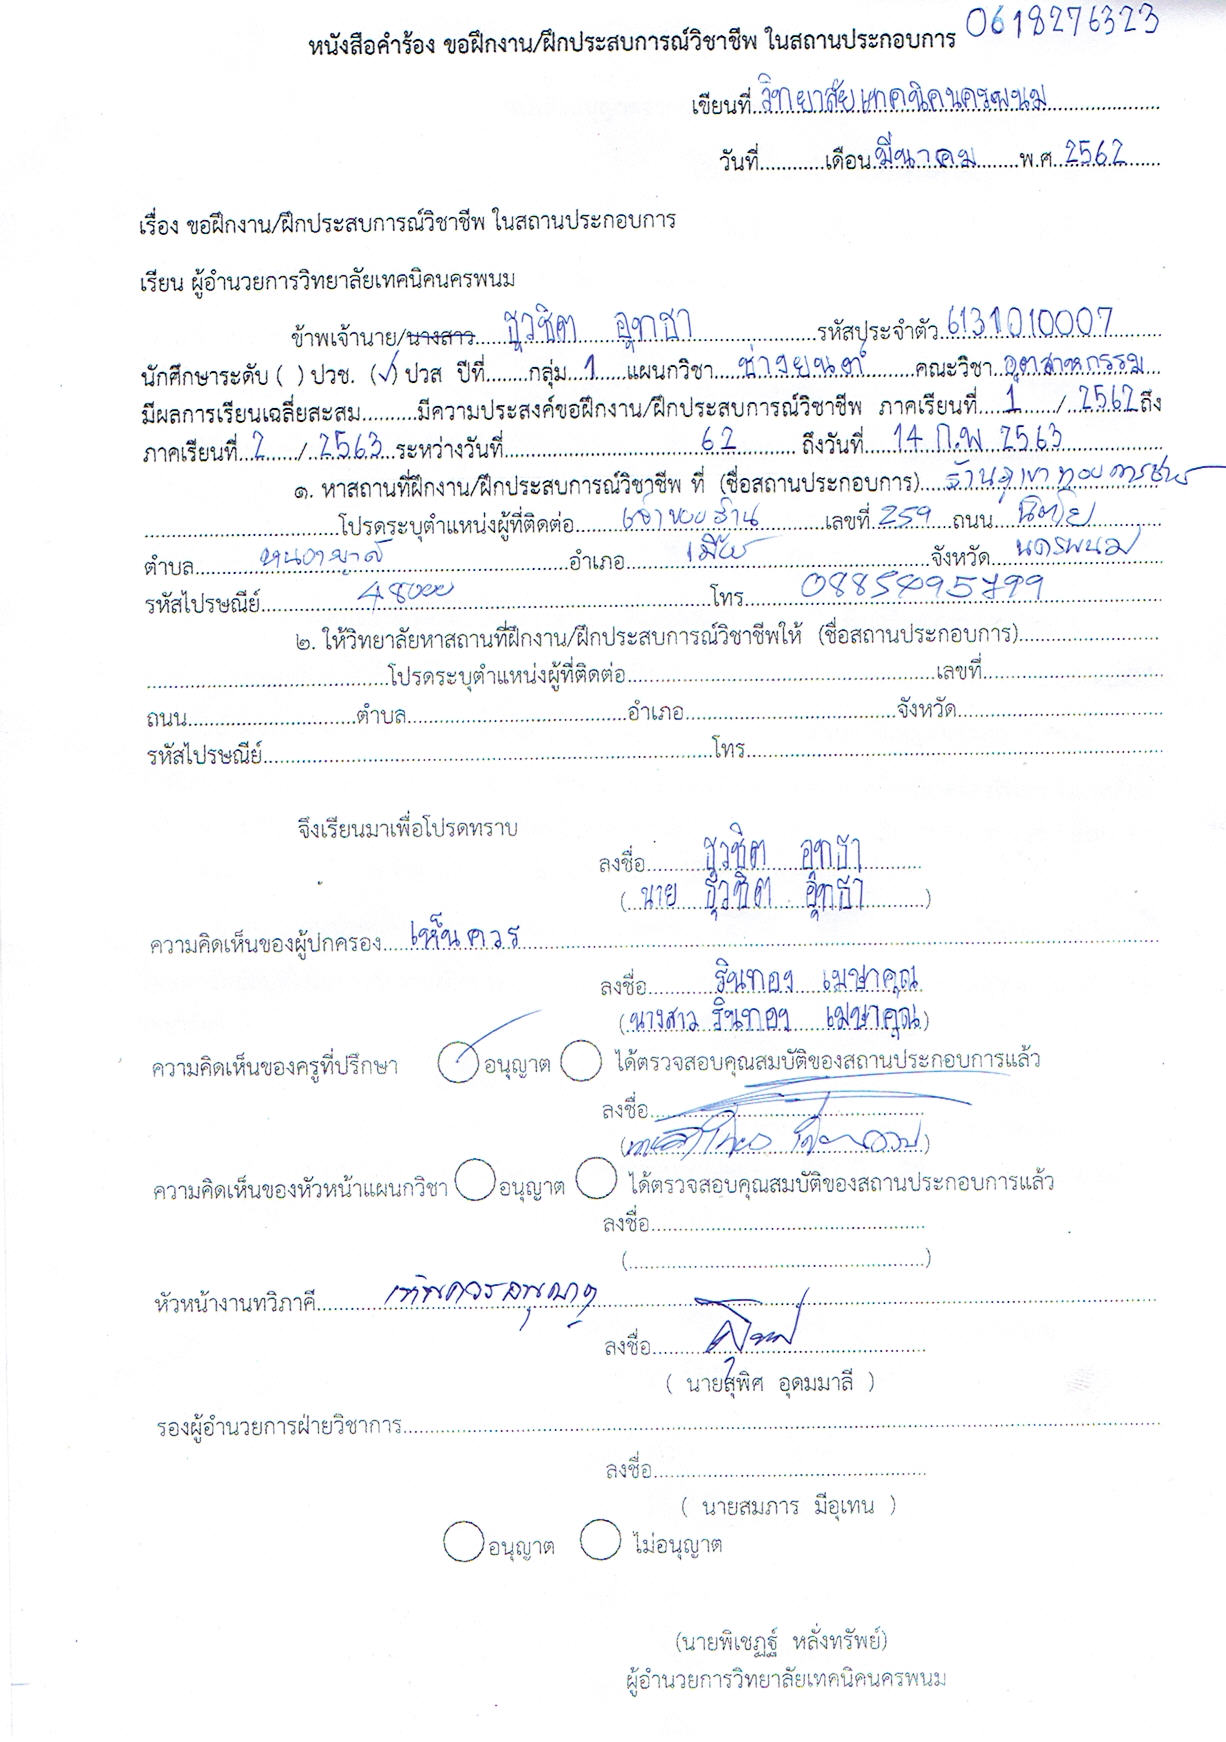 0618276323
หนังสือคำร้อง ขอฝึกงาน/ฝึกประสบการณ์วิชาชีพ ในสถานประกอบการ
เขียนที่ วิทยาลัยเทคนิคนครพนม
วันที่............เดือน มีนาคม พ.ศ. 2562
เรื่อง ขอฝึกงาน/ฝึกประสบการณ์วิชาชีพ ในสถานประกอบการ
เรียน ผู้อำนวยการวิทยาลัยเทคนิคนครพนม
ข้าพเจ้านาย/นางสาว ธุวชิต อุทธา รหัสประจำตัว 6131010007
นักศึกษาระดับ ( ) ปวช. (✓) ปวส ปีที่........กลุ่ม 1 แผนกวิชา ช่างยนต์ คณะวิชา อุตสาหกรรม
มีผลการเรียนเฉลี่ยสะสม.........มีความประสงค์ขอฝึกงาน/ฝึกประสบการณ์วิชาชีพ ภาคเรียนที่ 1 / 2562 ถึง
ภาคเรียนที่ 2 / 2563 ระหว่างวันที่ 62 ถึงวันที่ 14 ก.พ. 2563
๑. หาสถานที่ฝึกงาน/ฝึกประสบการณ์วิชาชีพ ที่ (ชื่อสถานประกอบการ)
โปรดระบุตำแหน่งผู้ที่ติดต่อ เจ้าของร้าน เลขที่ 259 ถนน นิตโย
ตำบล หนองญาติ อำเภอ เมือง จังหวัด นครพนม
รหัสไปรษณีย์ 48000 โทร
๒. ให้วิทยาลัยหาสถานที่ฝึกงาน/ฝึกประสบการณ์วิชาชีพให้ (ชื่อสถานประกอบการ)
โปรดระบุตำแหน่งผู้ที่ติดต่อ เลขที่
ถนน ตำบล อำเภอ จังหวัด
รหัสไปรษณีย์ โทร
จึงเรียนมาเพื่อโปรดทราบ
ลงชื่อ ธุวชิต อุทธา
( นาย ธุวชิต อุทธา )
ความคิดเห็นของผู้ปกครอง เห็นควร
ลงชื่อ รินทอง เมษาคุณ
(นางสาว รินทอง เมษาคุณ)
ความคิดเห็นของครูที่ปรึกษา อนุญาต ได้ตรวจสอบคุณสมบัติของสถานประกอบการแล้ว
ลงชื่อ
ความคิดเห็นของหัวหน้าแผนกวิชา อนุญาต ได้ตรวจสอบคุณสมบัติของสถานประกอบการแล้ว
ลงชื่อ
หัวหน้างานทวิภาคี เห็นควรอนุญาต
ลงชื่อ
( นายสุพิศ อุดมมาลี )
รองผู้อำนวยการฝ่ายวิชาการ
ลงชื่อ
( นายสมภาร มีอุเทน )
อนุญาต ไม่อนุญาต
(นายพิเชฏฐ์ หลั่งทรัพย์)
ผู้อำนวยการวิทยาลัยเทคนิคนครพนม